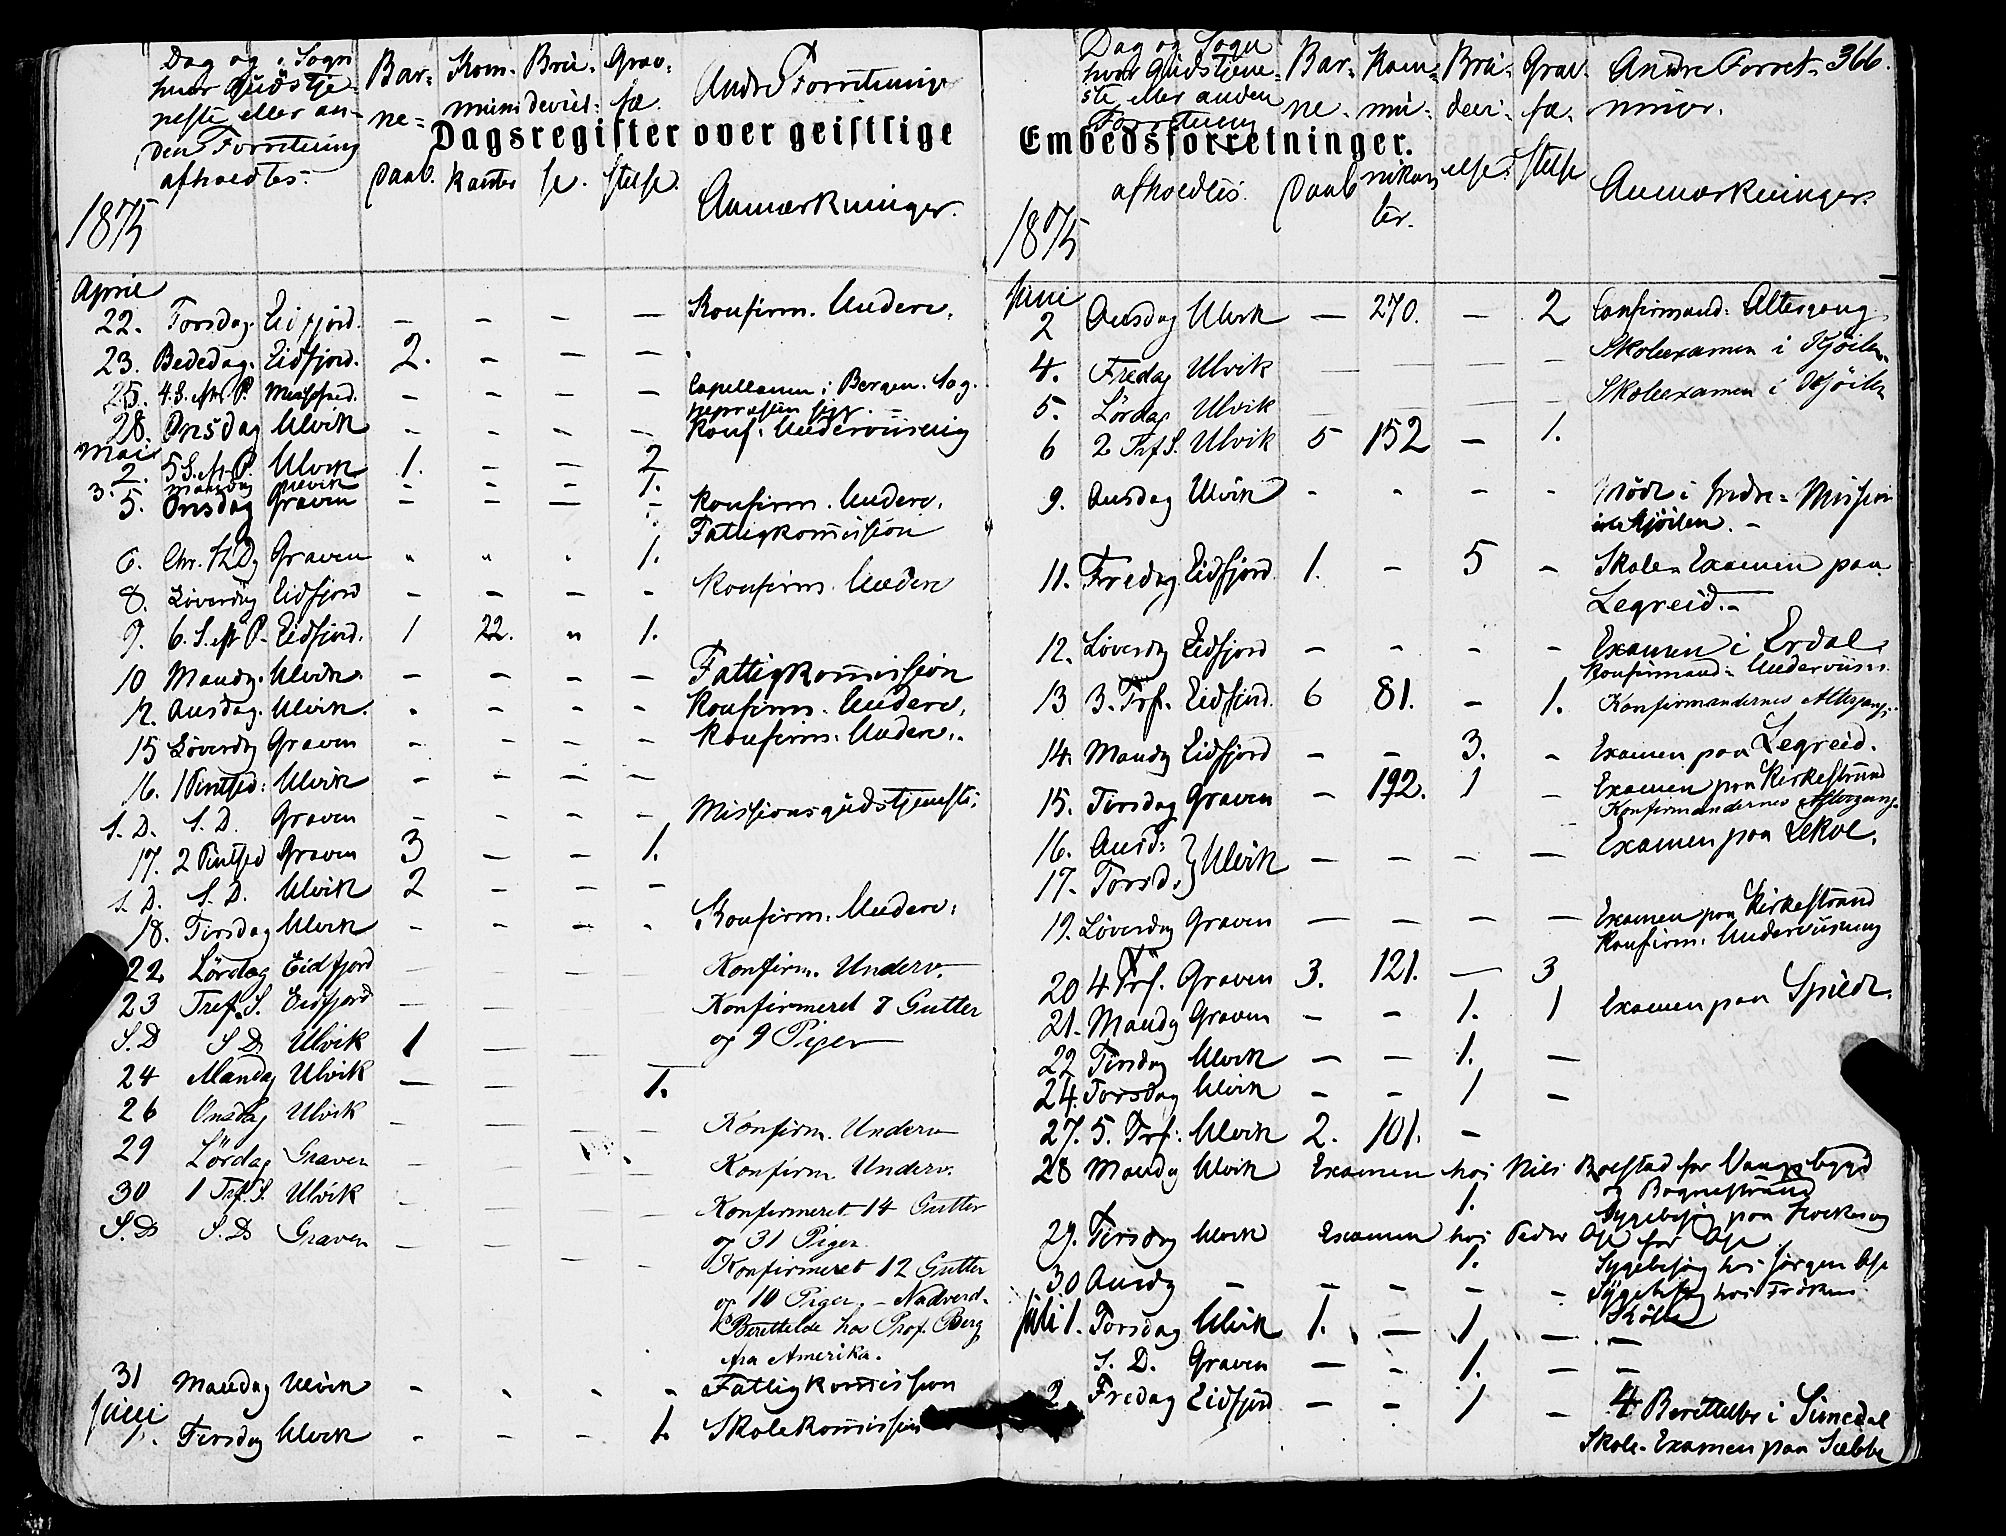 Dag og i Sogn
hvor Gudstje-
neste eller an-
den Forretning
afholdtes.
Bar-
ne-
Daab.
Kom-
muni
kanter
Brü-
deviel-
se.
Grav-
fæ-
stelse.
Andre Forretninger
Anmærkninger.
Dagsregister over geistlige
1875
April
22. Torsdag. Eidfjord. - - - - Konfirm. Underv.
23. Bededag. Eidfjord. 2. - - -
25. 4. S. eft P. - - - - Capellanen i Bergen.
28. Onsdag Ulvik - - - - Konf. Underviisning
Mai
2. 5 S. eft P. Ulvik 1. - - 2
3. Mandag Ulvik - - - 1.
5. Onsdag Graven - - - - Konfirm. Underv.
Fattigkommission
6. Chr. H. D. Graven " " " 1.
8. Løverdag Eidfjord - - - - Konfirm. Underv
9. 6. S. eft P. Eidfjord. 1 22. " 1.
10 Mandg. Ulvik. - - - - Fattigkommission
12. Onsdag. Ulvik. - - - - Konfirm. Underv.
15 Løverdag Graven - - - - Konfirm. Underv.
16. 1 Pintsed: Ulvik - - - -
S. D. S. D. Graven - - - - Missionsgudstjeneste.
17. 2 Pintsed Graven 3 - - 1.
S. D. S. D. Ulvik 2 - - -
18. Tirsdag Ulvik - - - - Konfirm. Underv.
22 Lördag Eidfjord - - - - Konfirm. Underv.
23 Tref. S. Eidfjord - - - - Konfirmeret 8 Gutter
og 9 Piger
S. D S. D Ulvik 1 - - -
24 Mandag Ulvik - - - 1.
26 Onsdag Ulvik - - - - Konfirm. Underv
29 Lördag Graven - - - - Konfirm. Underv.
30 1 Tref. S. Ulvik - - - - Konfirmeret 14 Gutter
og 31 Piger
S. D S. D Graven - - - - Konfirmeret 12 Gutter
og 10 Piger. - Nadverd.
Prof. Berg
fra Amerika.
31 Mandag Ulvik - - - - Fattigkommission
Juni
1. Tirsdag Ulvik - - - 1. Skolekommission
Dag og Sogn
hvor Gudstjene-
ste eller anden
Forretning
afholdtes.
Bar-
ne-
Daab
Kom-
mu-
nikan
ter.
Brü-
devi-
else.
Grav-
fæ-
stelse
Andre Forret-
ninger.
366.
Anmærkninger.
Embedsforretninger.
1875
Juni
2 Onsdag Ulvik - 270. - 2 Confirmand. Altergang.
4. Fredag Ulvik - - - - Skoleexamen i
5. Lördag Ulvik - - - - Skoleexamen i
6 2 Trf S. Ulvik 5 152 - 1.
9. Onsdag Ulvik - - - - Möde i Indre-Mission
11. Fredag Eidfjord. 1. - 5 - Skole-Examen paa
Legreid.-
12. Løverdg Eidfjord - - - - Examen i Erdal.
Konfirmand. Underviisn.
13 3. Trf. Eidfjord. 6 81. - 1. Konfirmandernes Altergang.
14. Mandg Eidfjord - - 3. - Examen paa Legreid.
15. Tirsdag Graven - 192. 1 - Examen paa Kirkestrand
Konfirmandernes Altergang.
16. Onsd: } Ulvik - - - - Examen paa
17. Torsd. }
19. Løverdag Graven - - - - Examen paa Kirkestrand
Konfirm. Underviisning
20 4 Trf. Graven 3. 121. - 3
21. Mandg Graven - - 1. 1 Examen paa
22 Tirsdag Ulvik - - 1. -
24. Torsdag Ulvik - - 1 -
27. 5. Trf. Ulvik 2. 101. -
28 Mandag Ulvik Examen hos Nils for Vangsbygd
og
1. Sygebesøg paa
29. Tirsdag Ulvik Examen hos Peder for
1. Sygebesøg hos Jørgen
30 Onsdg - - - - - Sygebesøg hos Frøken
Juli 1. Torsdag Ulvik 1. - 1 - -
S. D. Graven - - 1. - -
2 Fredag Eidfjord - - 1 - i Simedal
Skole-Examen paa Sæbbe